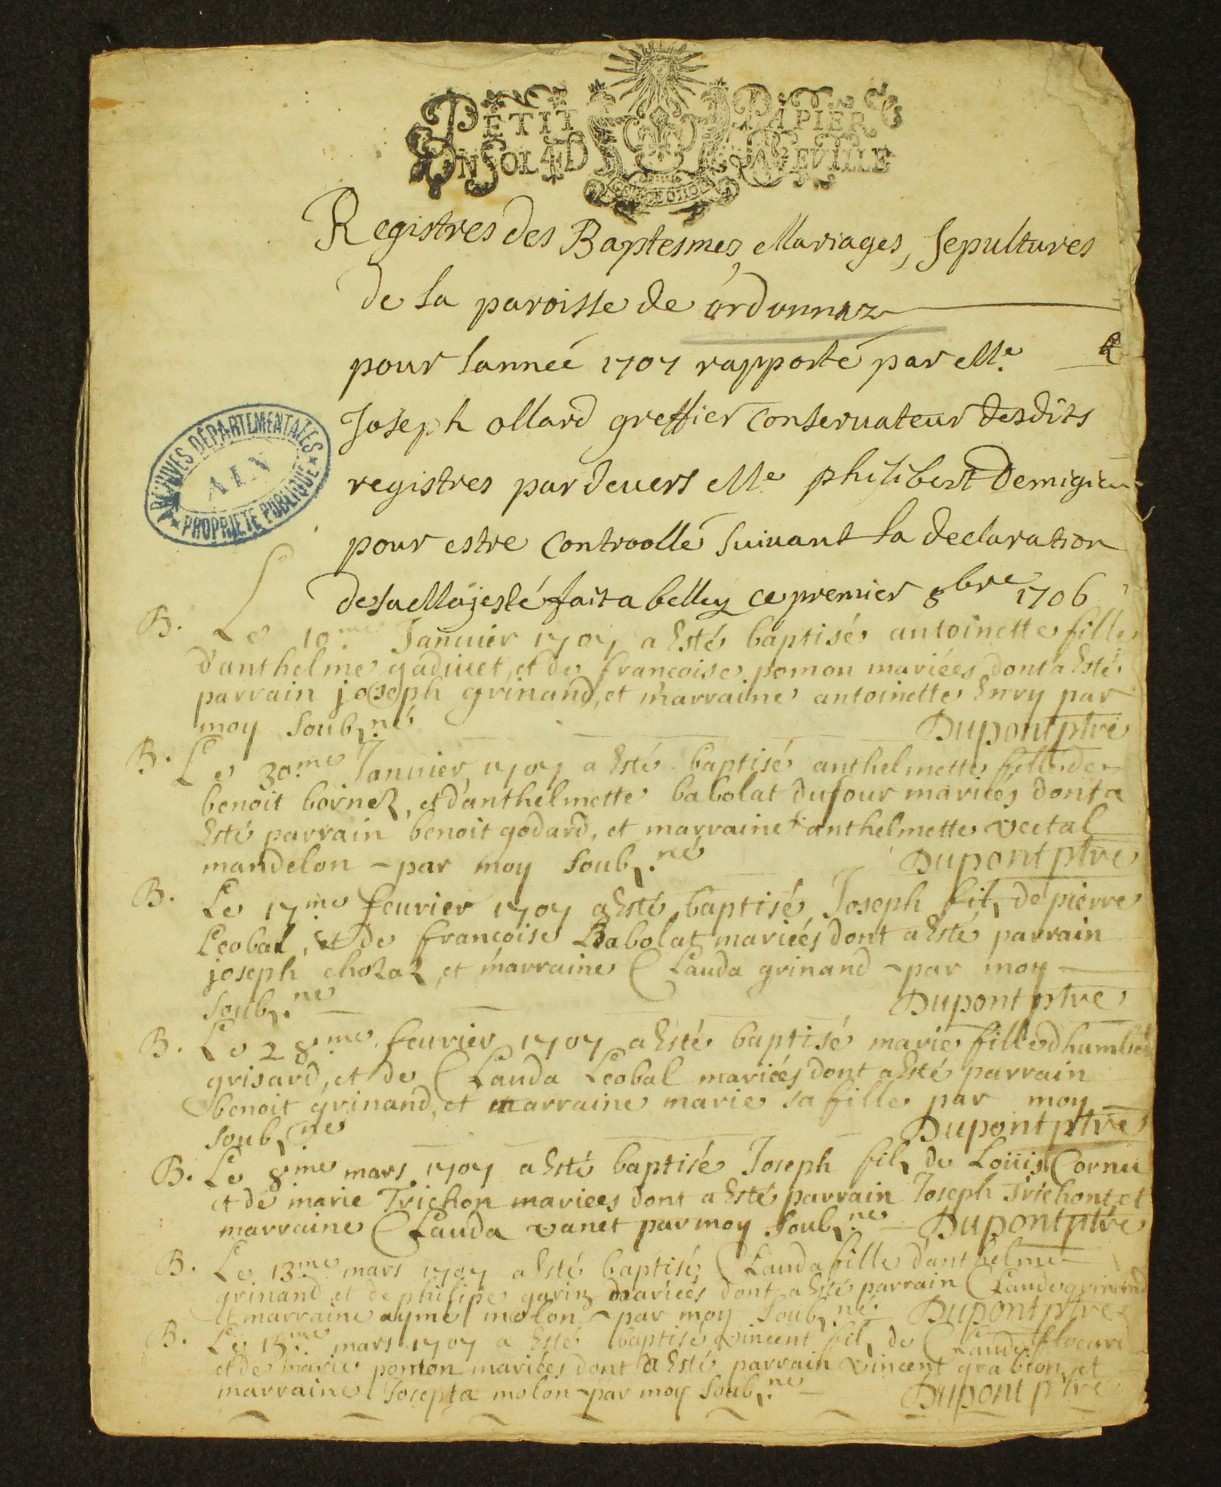 PETIT PAPIER
UN SOL 4 D LA FEUILLE
Registres des Baptesmes, Mariages, Sepultures
de la paroisse de ordonnaz
pour lannée 1707 rapporté par Me.
Joseph ollard greffier conservateur desdits
registres pardevers Me philibert Demigieu
pour estre controollé suivant la declaration
de sa Majesté fait a belley ce premier 8bre 1706
ARCHIVES DÉPARTEMENTALES
AIN
PROPRIÉTÉ PUBLIQUE
B. Le 10me Janvier 1707 a Esté baptisé antoinette fille
d'anthelme gadivet, et de francoise pomon mariées dont a Esté
parrain joseph grinand, et marraine antoinette Envy par
moy soubz.né Dupont ptre
B. Le 30me Janvier 1707 a Esté baptisé anthelmette fille de
benoit bornez, et d'anthelmette babolat dufour mariées dont a
Esté parrain benoit godard, et marraine anthelmette
mandelon - par moy soubz.né Dupont ptre
B. Le 17me fevrier 1707 a Esté baptisé Joseph filz de pierre
Leobal, et de francoise Babolat mariées dont a Esté parrain
joseph chozaz, et marraine Clauda grinand - par moy
soubz.né Dupont ptre
B. Le 28me fevrier 1707 a Esté baptisé marie fille dhumbert
grisard, et de Clauda Leobal mariées dont a Esté parrain
benoit grinand, et marraine marie sa fille par moy
soubz.né Dupont ptre
B. Le 8me mars 1707 a Esté baptisé Joseph filz de Loüis Cornu
et de marie Trichon mariees dont a Esté parrain Joseph Trichont et
marraine Clauda vanet par moy soubz.né Dupont ptre
B. Le 13me mars 1707 a Esté baptisé Clauda fille d'anthelme
grinand et de philipe garin mariées dont a Esté parrain Claude grinand
et marraine aymé molon - par moy soubz.né Dupont ptre
B. Le 15me mars 1707 a Esté baptisé vincent filz de Claude
et de marie pomon mariées dont a Esté parrain vincent grabion, et
marraine Josepta molon - par moy soubz.né Dupont ptre